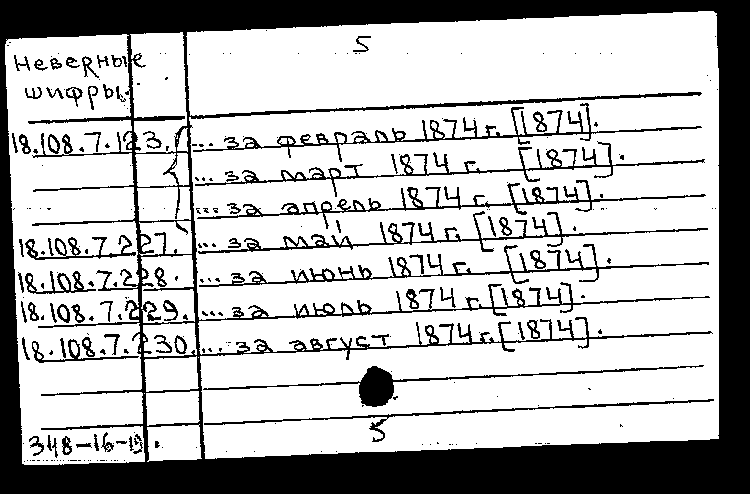 5
Неверные
шифры.
18.108.7.123. { ... за февраль 1874 г. [1874].
... за март 1874 г. [1874].
... за апрель 1874 г. [1874].
18.108.7.227. ... за май 1874 г. [1874].
18.108.7.228. ... за июнь 1874 г. [1874].
18.108.7.229. ... за июль 1874 г. [1874].
18.108.7.230. ... за август 1874 г. [1874].
348-16-19.
5